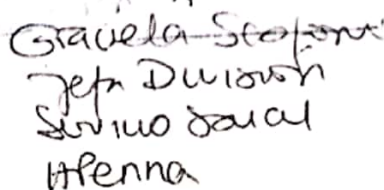 Graciela Stefani
Jefa División
Servicio Social
HPenna